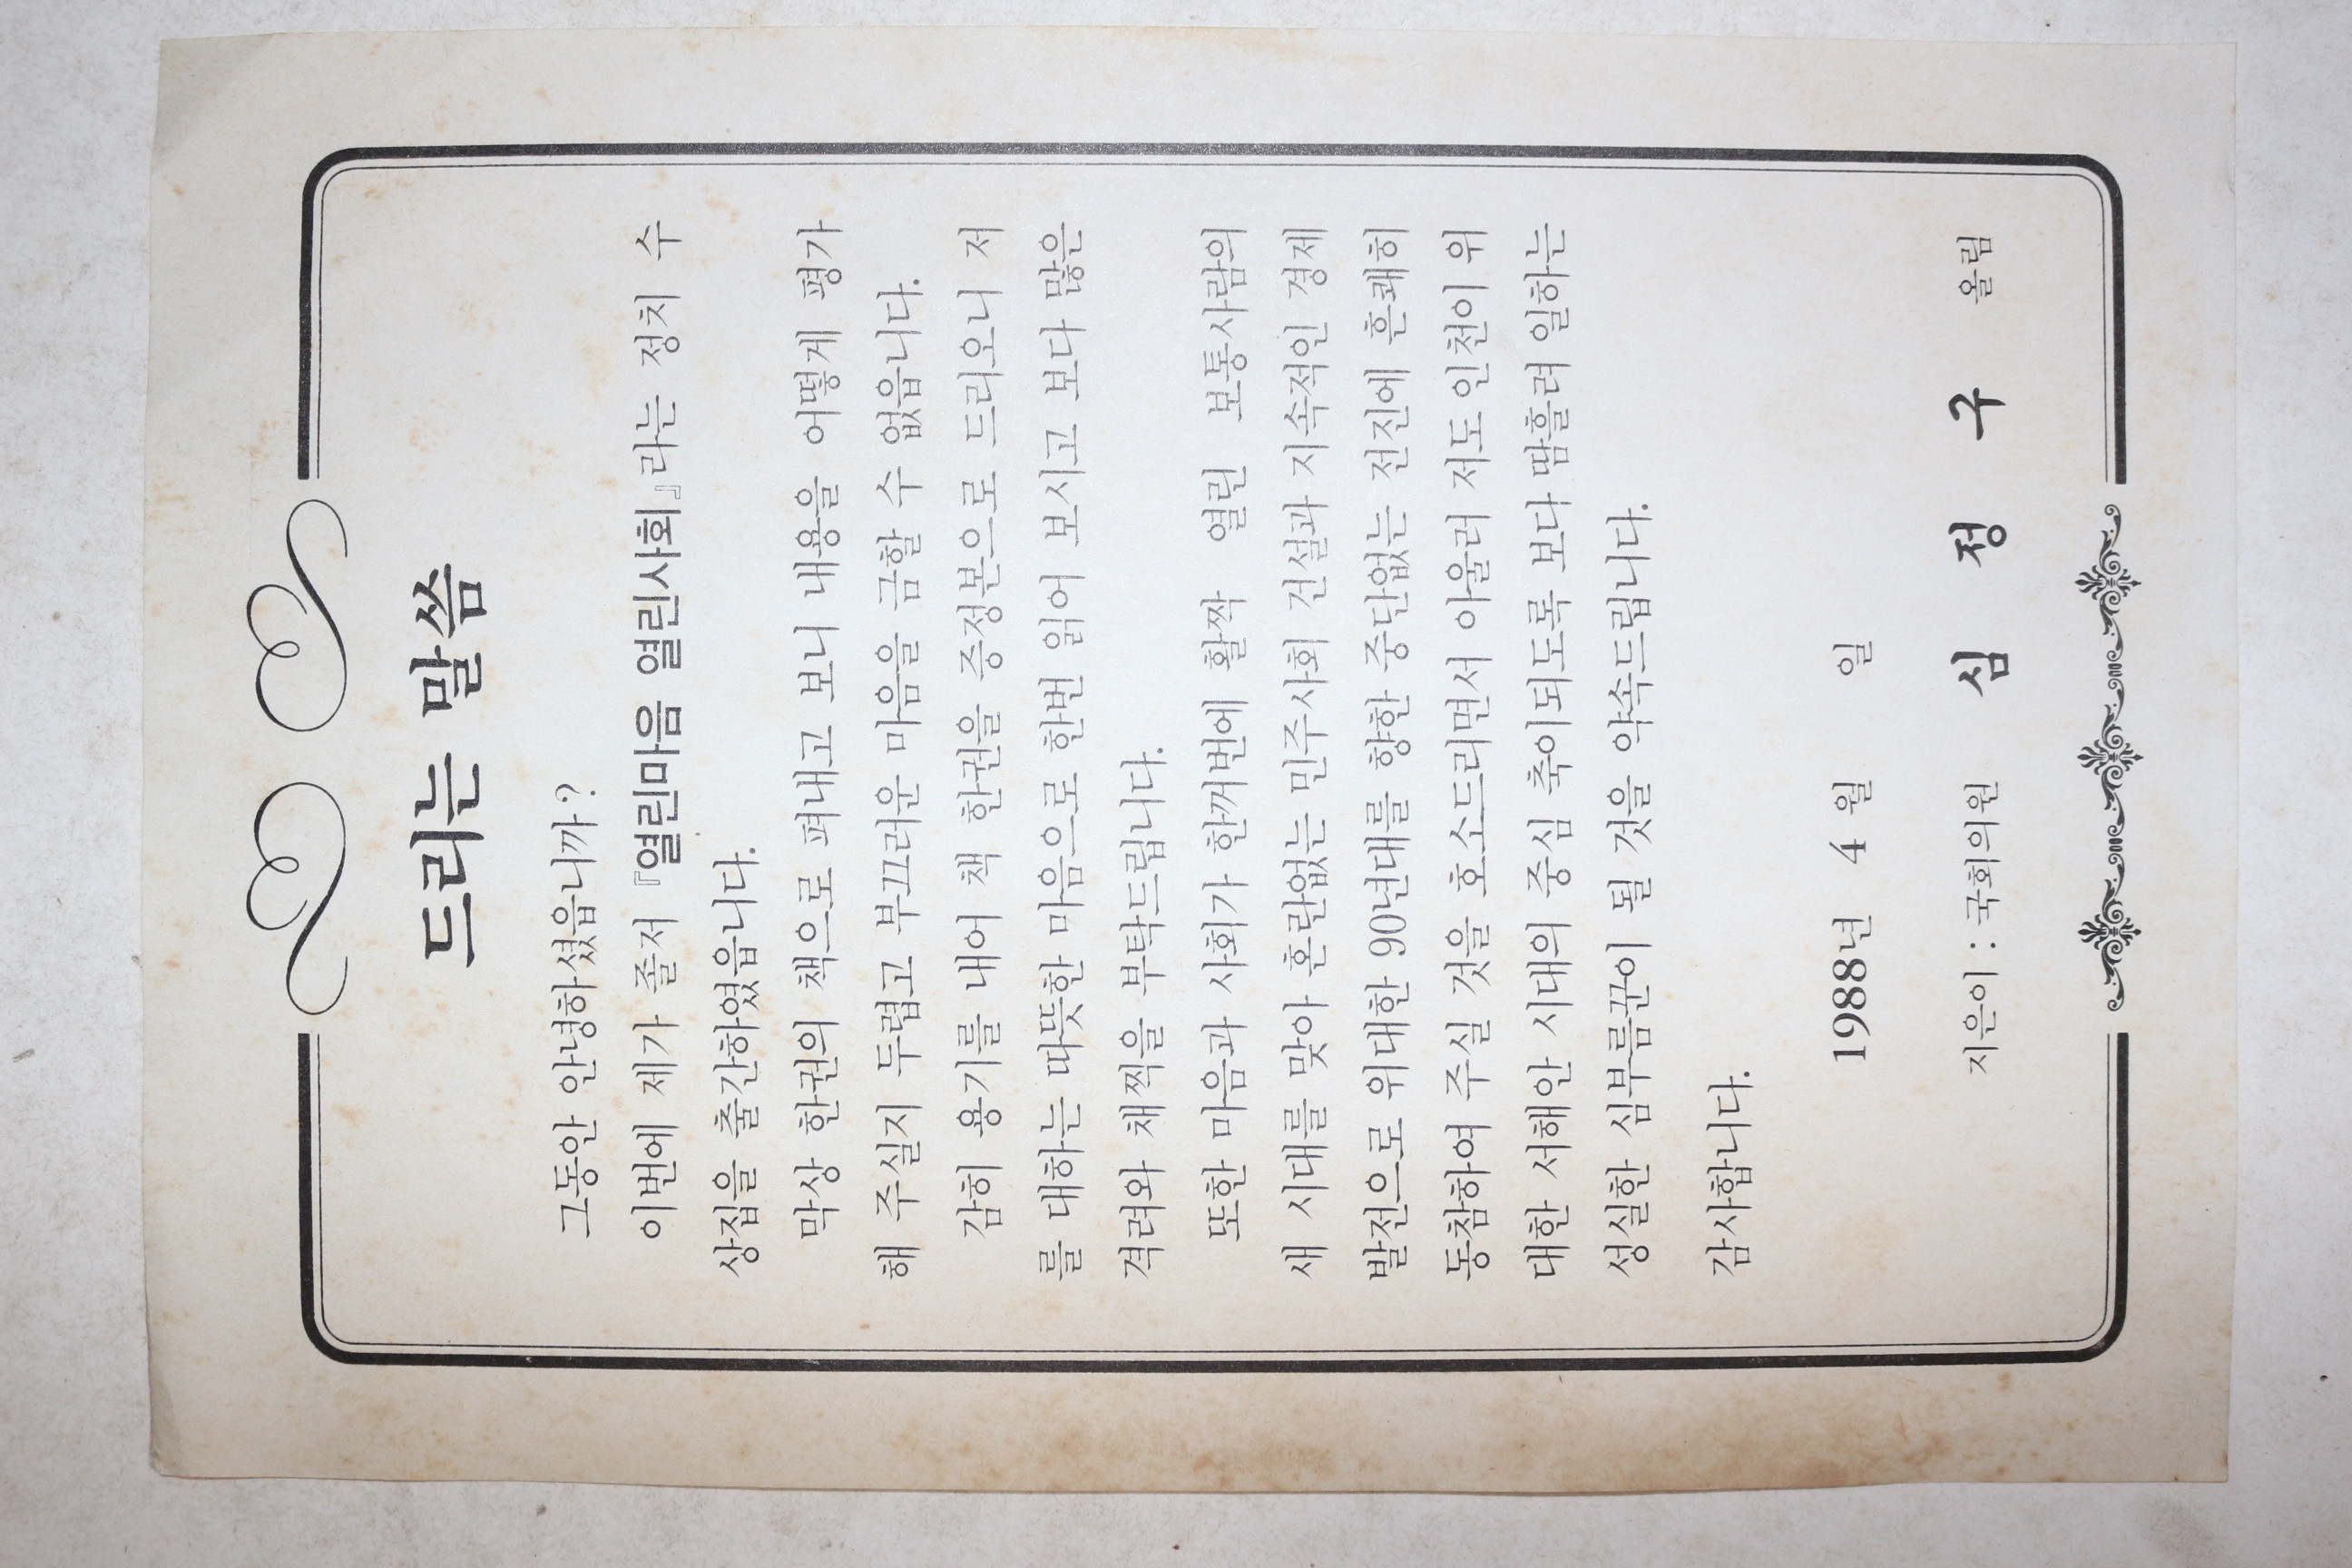 드리는 말씀
그동안 안녕하셨읍니까?
이번에 제가 졸저 『열린마음 열린사회』라는 정치 수
상집을 출간하였읍니다.
막상 한권의 책으로 펴내고 보니 내용을 어떻게 평가
해 주실지 두렵고 부끄러운 마음을 금할 수 없읍니다.
감히 용기를 내어 책 한권을 증정본으로 드리오니 저
를 대하는 따뜻한 마음으로 한번 읽어 보시고 보다 많은
격려와 채찍을 부탁드립니다.
또한 마음과 사회가 한꺼번에 활짝 열린 보통사람의
새 시대를 맞아 혼란없는 민주사회 건설과 지속적인 경제
발전으로 위대한 90년대를 향한 중단없는 전진에 흔쾌히
동참하여 주실 것을 호소드리면서 아울러 저도 인천이 위
대한 서해안 시대의 중심 축이되도록 보다 땀흘려 일하는
성실한 심부름꾼이 될 것을 약속드립니다.
감사합니다.
1988년 4월 일
지은이 : 국회의원 심 정 구 올림